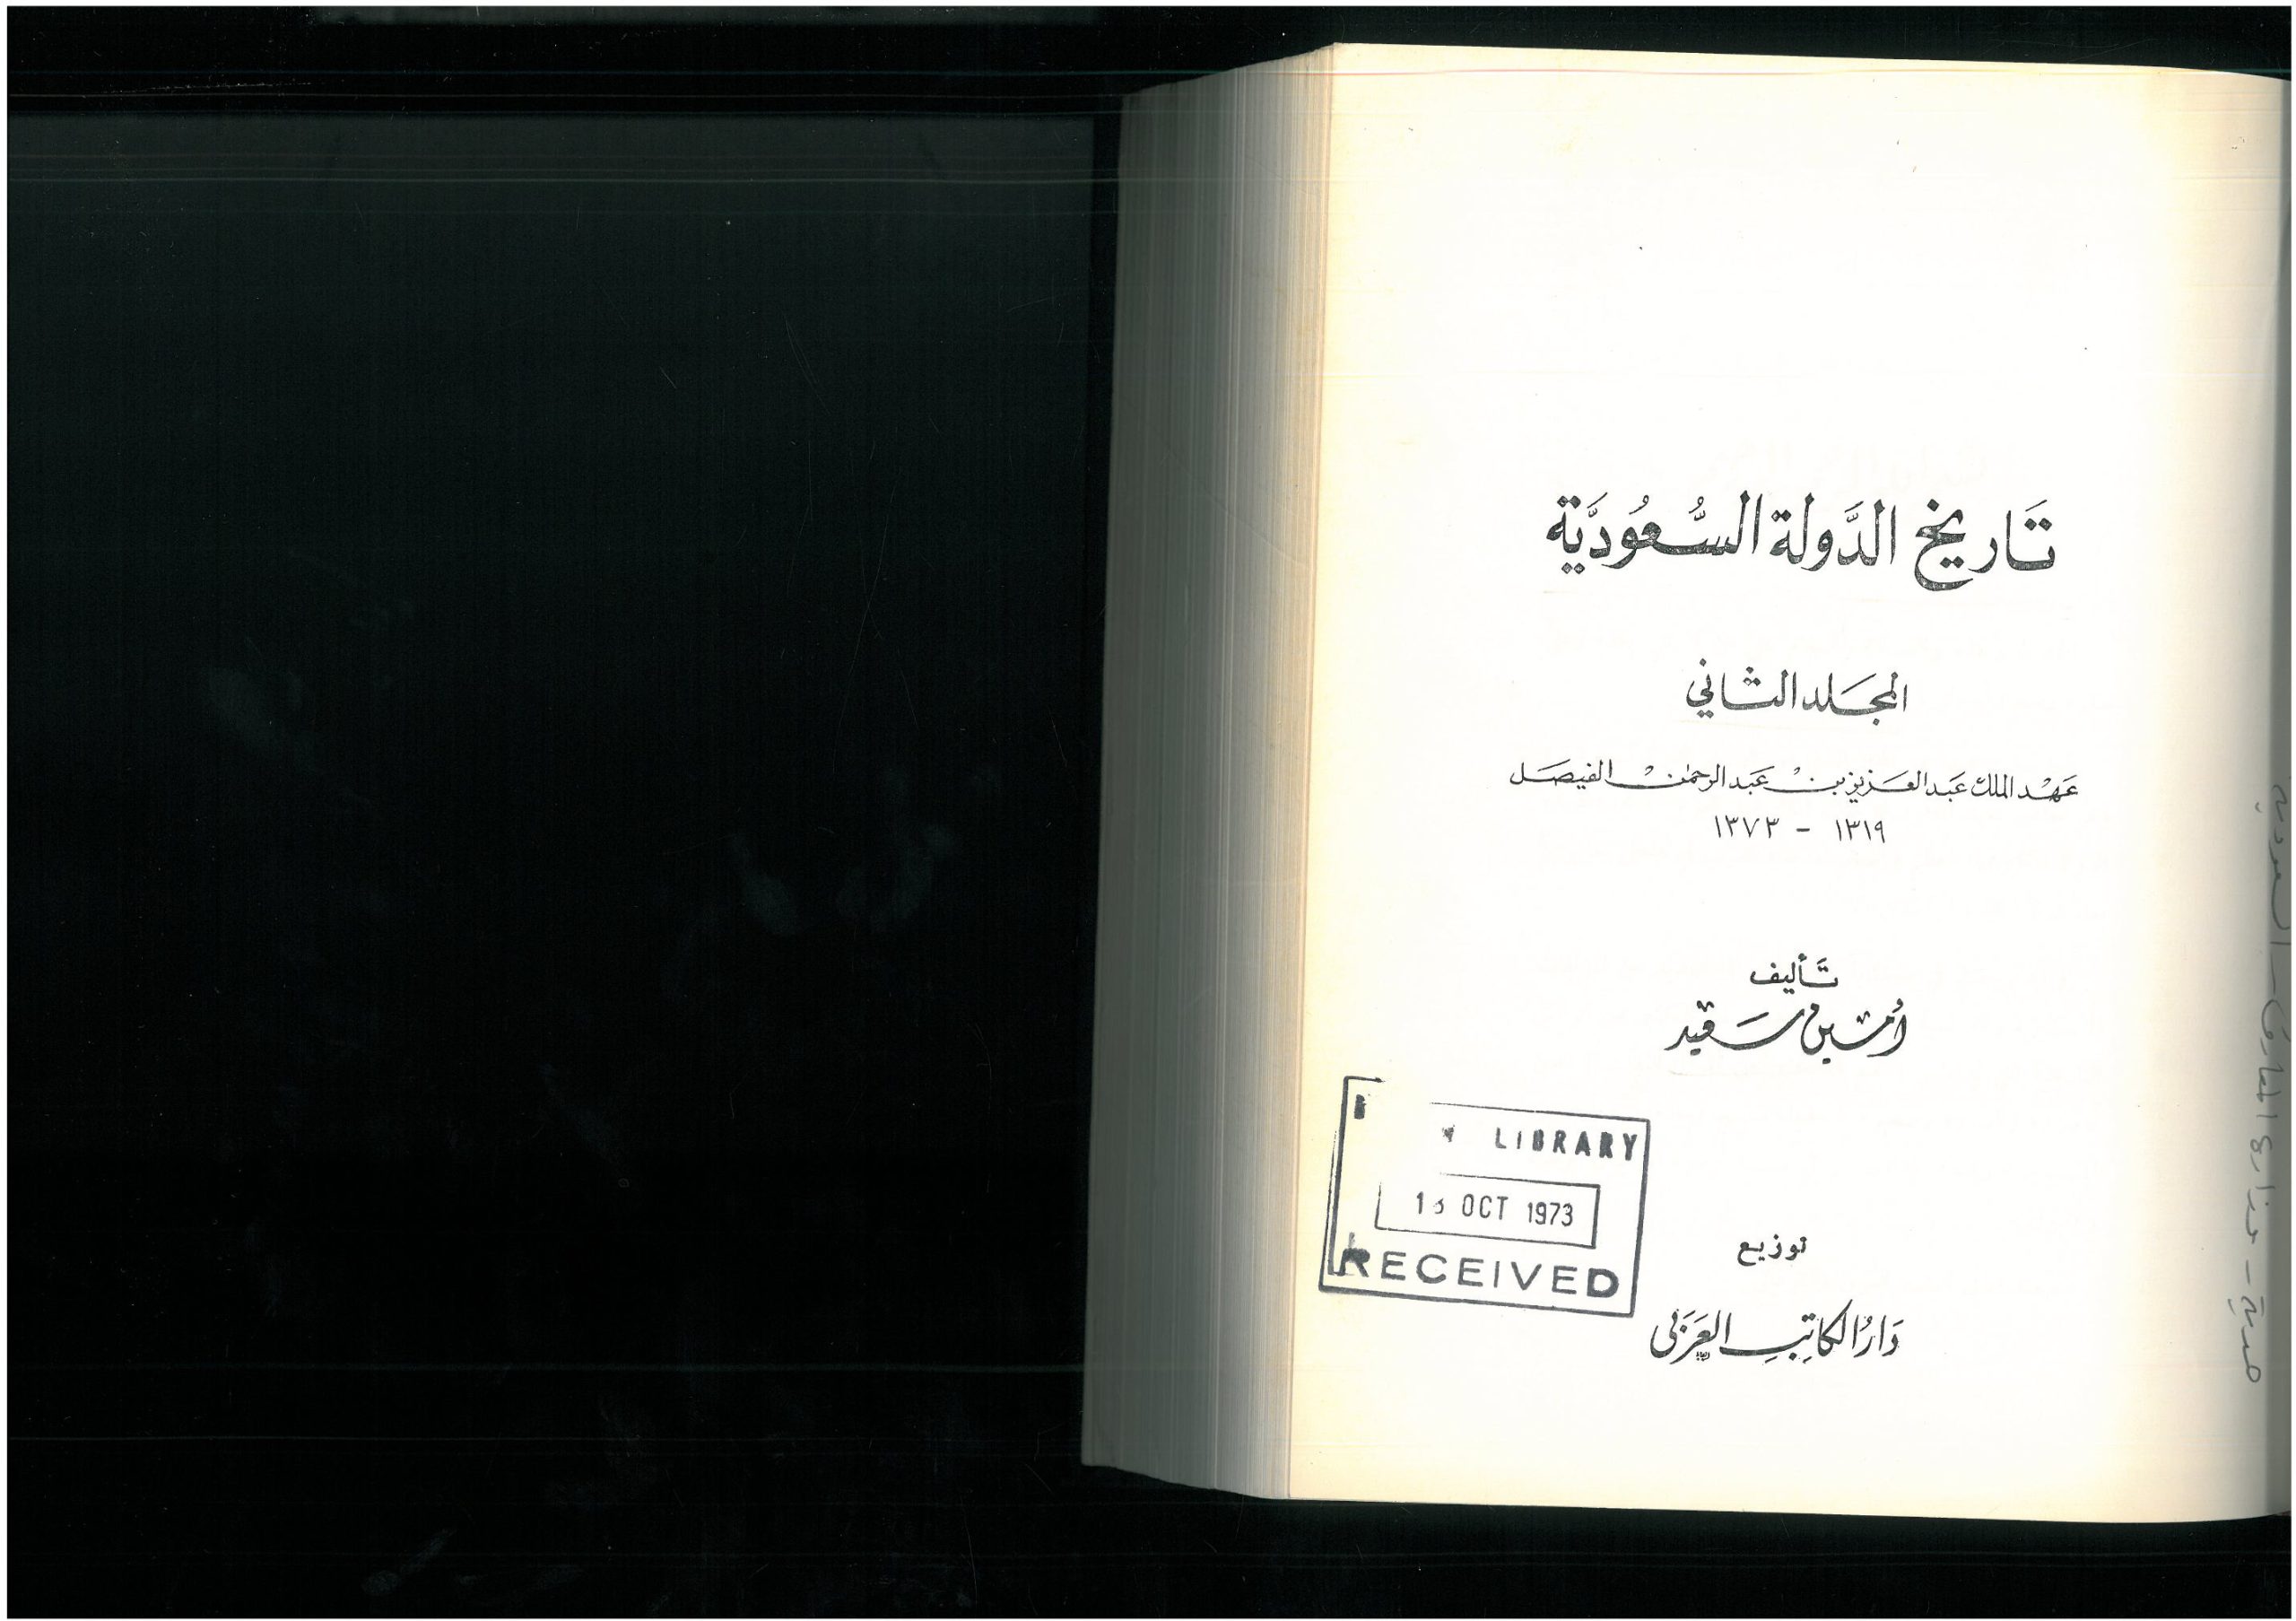 تَاريخ الدَّولة السُّعُوديَّة
المجَلد الثاني
عَهْد الملك عَبد العَزيز بنْ عَبد الرحمٰنْ الفيصَل
١٣١٩ - ١٣٧٣
تَأليف
أمين سَعيد
LIBRARY
OCT 1973
RECEIVED
توزيع
دَارُ الكاتِبِ العَرَبي
هدية - وزارة المعارف - السعودية